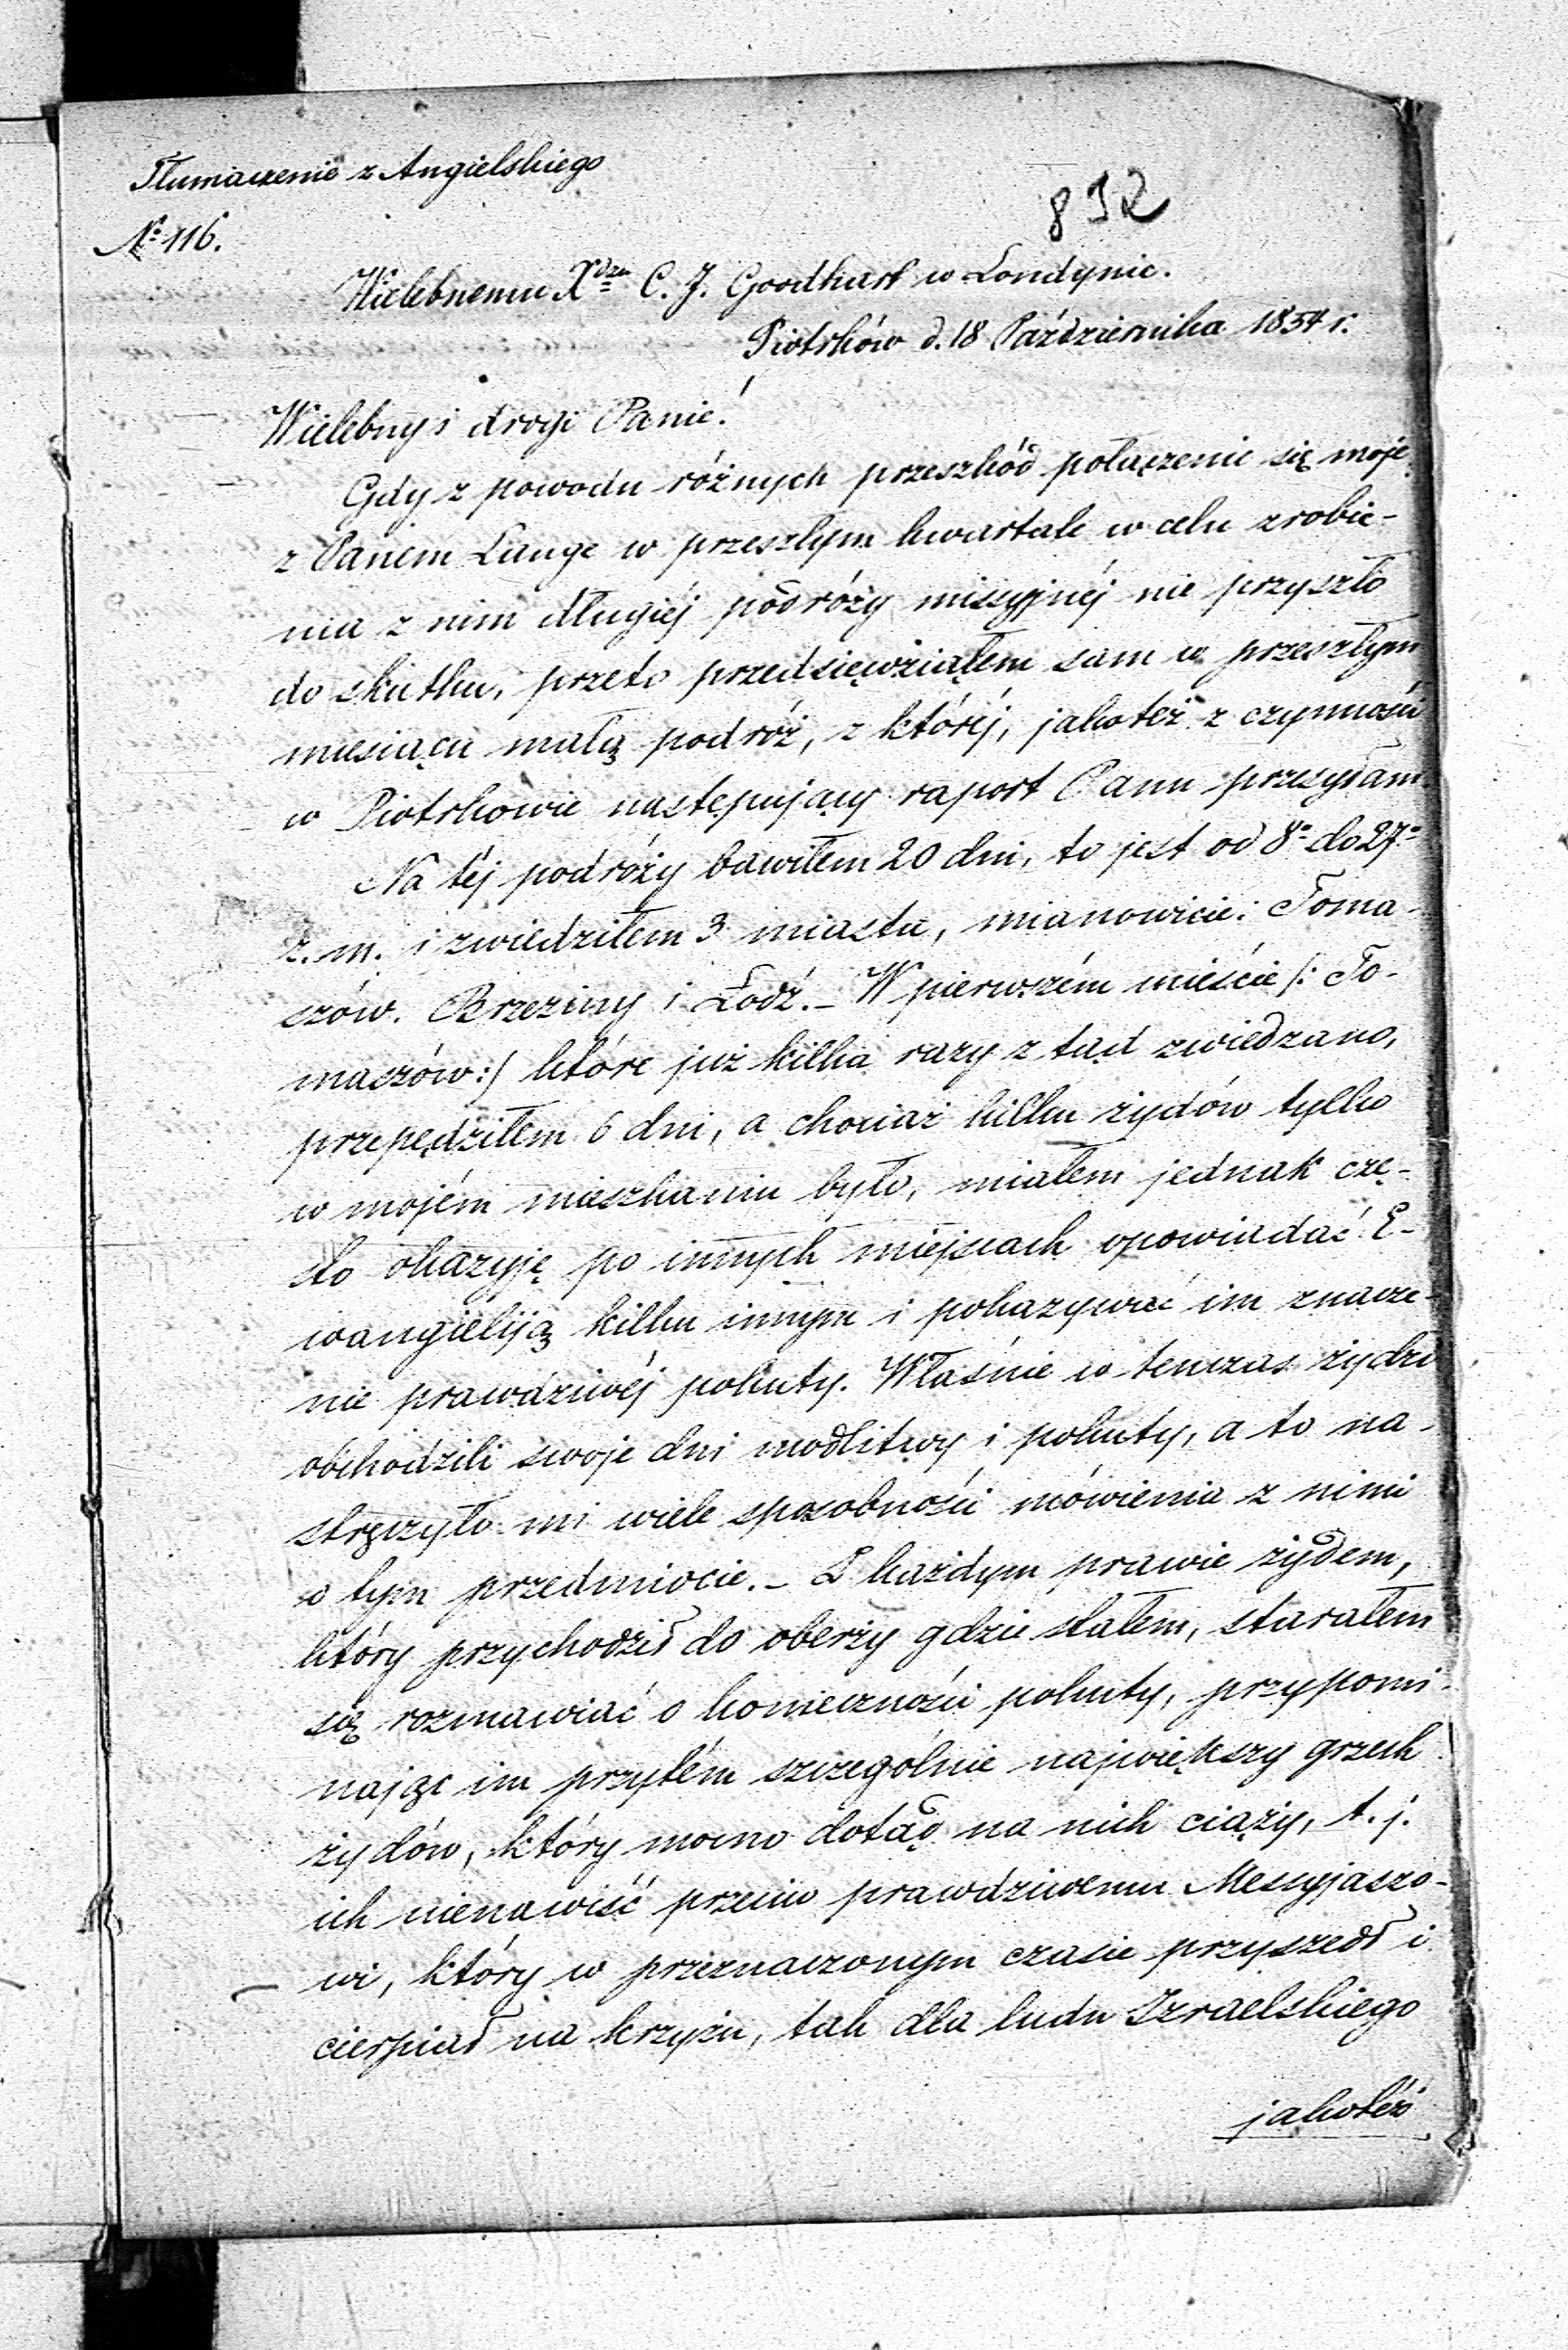 Tłumaczenie z Angielskiego
892
№ 116.
Wielebnemu Xdzu C. J. Goodhart w Londynie.
Piotrków d. 18 Października 1854 r.
Wielebny i drogi Panie!
Gdy z powodu różnych przeszkód połączenie się moje
z Panem Lange w przeszłym kwartale w celu zrobie-
nia z nim długiéj podróży missyjnéj nie przyszło
do skutku, przeto przedsięwziąłem sam w przeszłym
miesiącu małą podróż, z któréj, jakoteż z czynności
w Piotrkowie następujący raport Panu przesyłam.
Na téj podróży bawiłem 20 dni, to jest od 8º do 27º
z. m. i zwiedziłem 3 miasta, mianowicie: Toma-
szów. Brzeziny i Łodź. – W pierwszém mieście /: To-
maszów :/ które już kilka razy z tąd zwiedzano,
przepędziłem 6 dni, a chociaż kilku żydów tylko
w mojém mieszkaniu było, miałem jednak czę-
sto okazyję po innych miejscach opowiadać E-
wangieliją kilku innym i pokazywać im znacze-
nie prawdziwéj pokuty. Właśnie w tenczas żydzi
obchodzili swoje dni modlitwy i pokuty, a to na-
stręczyło mi wiele sposobności mówienia z nimi
o tym przedmiocie. – Z każdym prawie żydem,
który przychodził do oberży gdzie stałem, starałem
się rozmawiać o konieczności pokuty, przypomi-
nając im przytém szczególnie największy grzech
żydów, który mocno dotąd na nich ciąży, t. j.
ich nienawiść przeciw prawdziwemu Messyjaszo-
wi, który w przeznaczonym czasie przyszedł i
cierpiał na krzyżu, tak dla ludu Izraelskiego
jakotéż